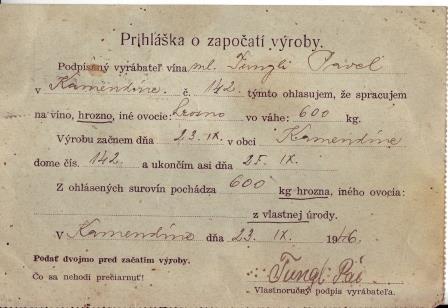 Prihláška o započatí výroby.
Podpísaný vyrábateľ vína ml. Tungli Pavel
v Kamendíne. č. 142. týmto ohlasujem, že spracujem
na víno, hrozno, iné ovocie: hrozno vo váhe: 600 kg.
Výrobu začnem dňa 23. IX. v obci Kamendíne
dome čís. 142 a ukončím asi dňa 25. IX.
Z ohlásených surovín pochádza 600 kg hrozna, iného ovocia:
z vlastnej úrody.
V Kamendíne dňa 23. IX. 1946.
Podať dvojmo pred začatím výroby.
Čo sa nehodí prečiarnuť!
Tungli Pál
Vlastnoručný podpis vyrábateľa.